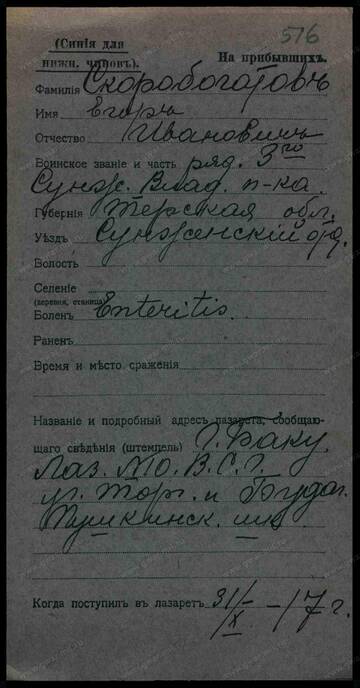 576
(Синія для
нижн. чиновъ).
На прибывшихъ.
Фамилія Скоробогатовъ
Имя Егоръ
Отчество Ивановичъ
Воинское званіе и часть ряд. 3го
Сунж. Влад. п-ка.
Губернія Терская обл.
Уѣздъ Сунженскій отд.
Волость
Селеніе
(деревня, станица)
Боленъ Enteritis.
Раненъ
Время и мѣсто сраженія
Названіе и подробный адресъ лазарета, сообщаю-
щаго свѣдѣнія (штемпель) г. Баку
Лаз. №0. В.С.Г.
уг. Торг. и
Пушкинск. шк
Когда поступилъ въ лазаретъ 31/X - 17 г.